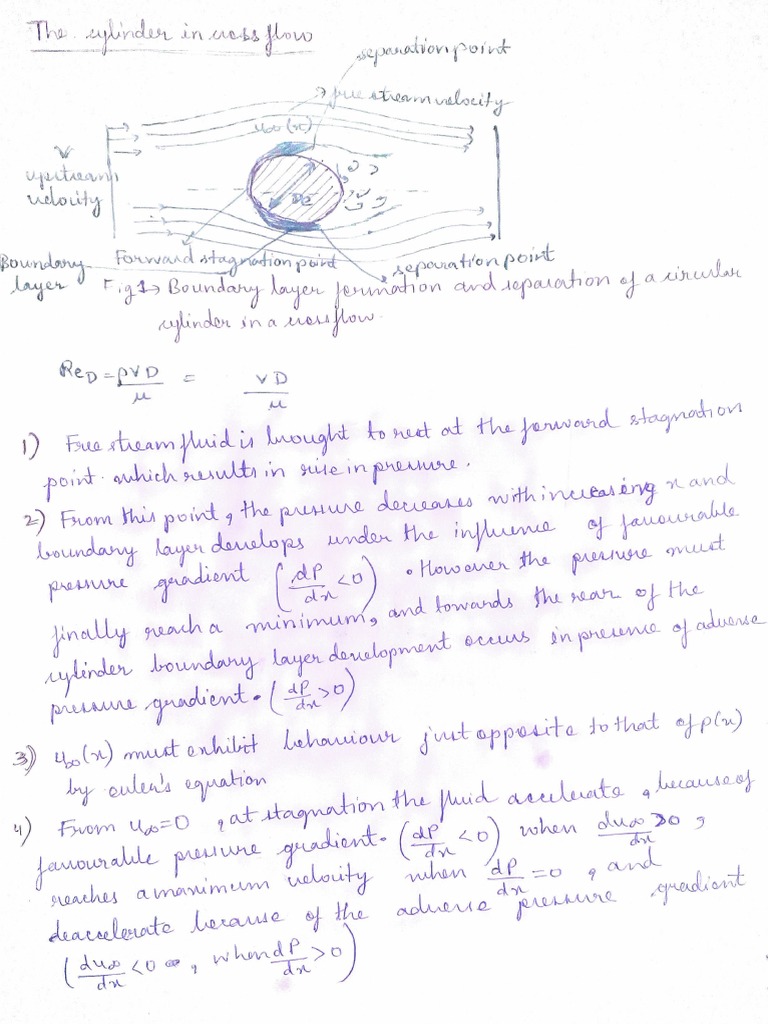 The cylinder in cross flow
separation point
free stream velocity
u∞(x)
V
upstream
velocity
D
Boundary
layer
Forward stagnation point
separation point
Fig 1→ Boundary layer formation and separation of a circular
cylinder in a crossflow.
Re_D = ρVD/μ = VD/μ
1) Free stream fluid is brought to rest at the forward stagnation
point. which results in rise in pressure.
2) From this point, the pressure decreases with increasing x and
boundary layer develops under the influence of favourable
pressure gradient (dP/dx < 0). However the pressure must
finally reach a minimum, and towards the rear of the
cylinder boundary layer development occurs in presence of adverse
pressure gradient. (dP/dx > 0)
3) u∞(x) must exhibit behaviour just opposite to that of p(x)
by euler's equation
4) From u∞=0, at stagnation the fluid accelerate, because of
favourable pressure gradient. (dP/dx < 0) when du∞/dx > 0,
reaches a maximum velocity when dP/dx = 0, and
deaccelerate because of the adverse pressure gradient
(du∞/dx < 0, when dP/dx > 0)